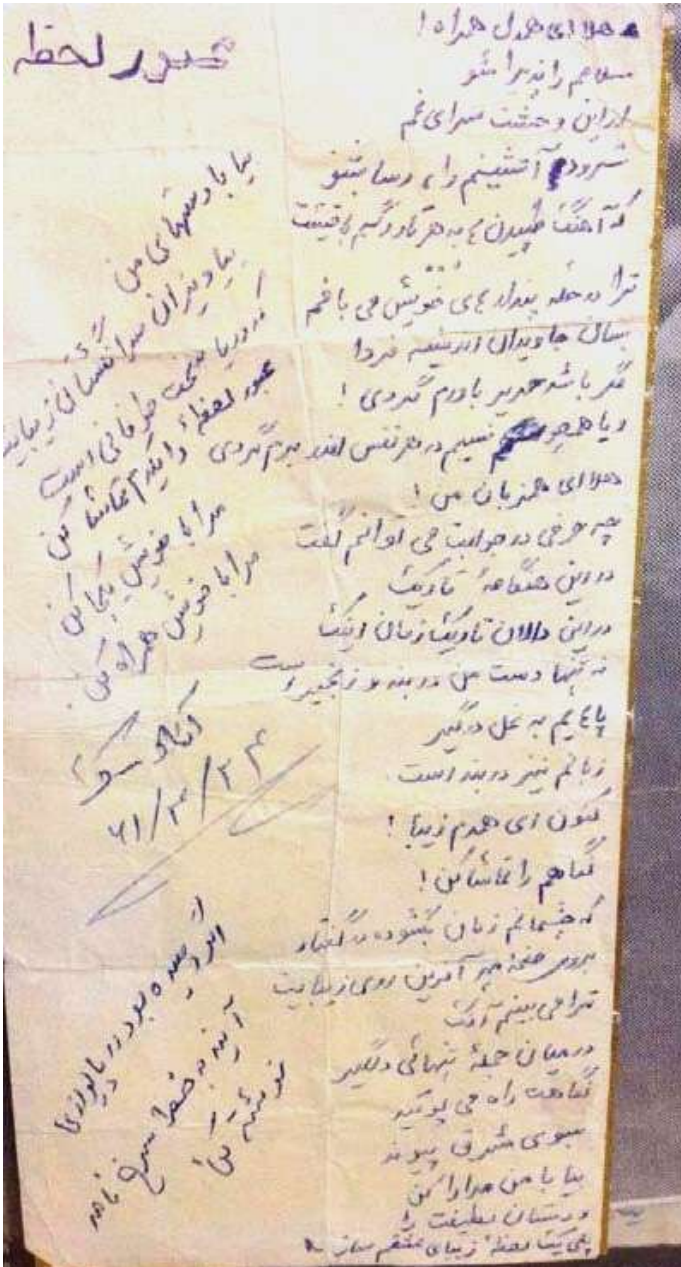 عبور لحظه
هلا ای همدل همراه!
سلامم را پذیرا شو
از این وحشت سرای غم
سرود آتشینم را، رسا بشنو
که آهنگ طپیدن به هر تار
ترا در حجله پندارهای خویش می یابم
بسان جاودان اندیشه فردا
مگر باشد باورم گردی!
و یا همچو نسیم در هر نفس اندر برم گردی
هلا ای همزبان من!
چه حرفی در جوابت می توانم گفت
در این هنگامهٔ تاریک
در این دالان تاریک زمان اینک
نه تنها دست من در بند و زنجیر است
پایم به غل درگیر
زبانم نیز در بند است.
کنون ای همدم زیبا!
نگاهم را تماشا کن!
که چشمانم زبان بگشوده در گفتار
بروی صفحهٔ مهر آفرین روی زیبایت
ترا می بینم آنک
در میان حجلهٔ تنهائی دلگیر
نگاهت راه می پوید
بسوی مشرق پیوند
بیا با من مدارا کن
و دستان لطیفت را
یک لحظهٔ زیبای ساز
بیا با دستهای من
بیاویزان سرانگشتان زیبایت
که دریا سخت طوفانی است
عبور لحظهٔ دیگر تماشا کن
مرا با خویش یکجا کن
مرا با خویش همراه کن.
۶۱/۳/۲۴
به خط سرخ نامه